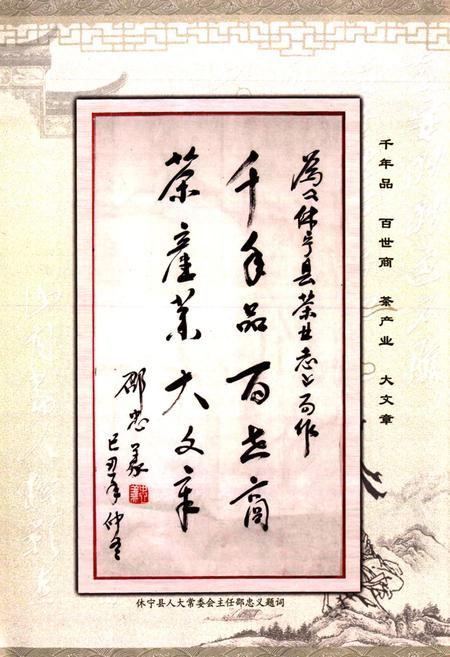 千年品 百世商 茶产业 大文章
为《休宁县茶业志》而作
千年品百世商
茶産業大文章
邵忠义
己丑年仲冬
休宁县人大常委会主任邵忠义题词